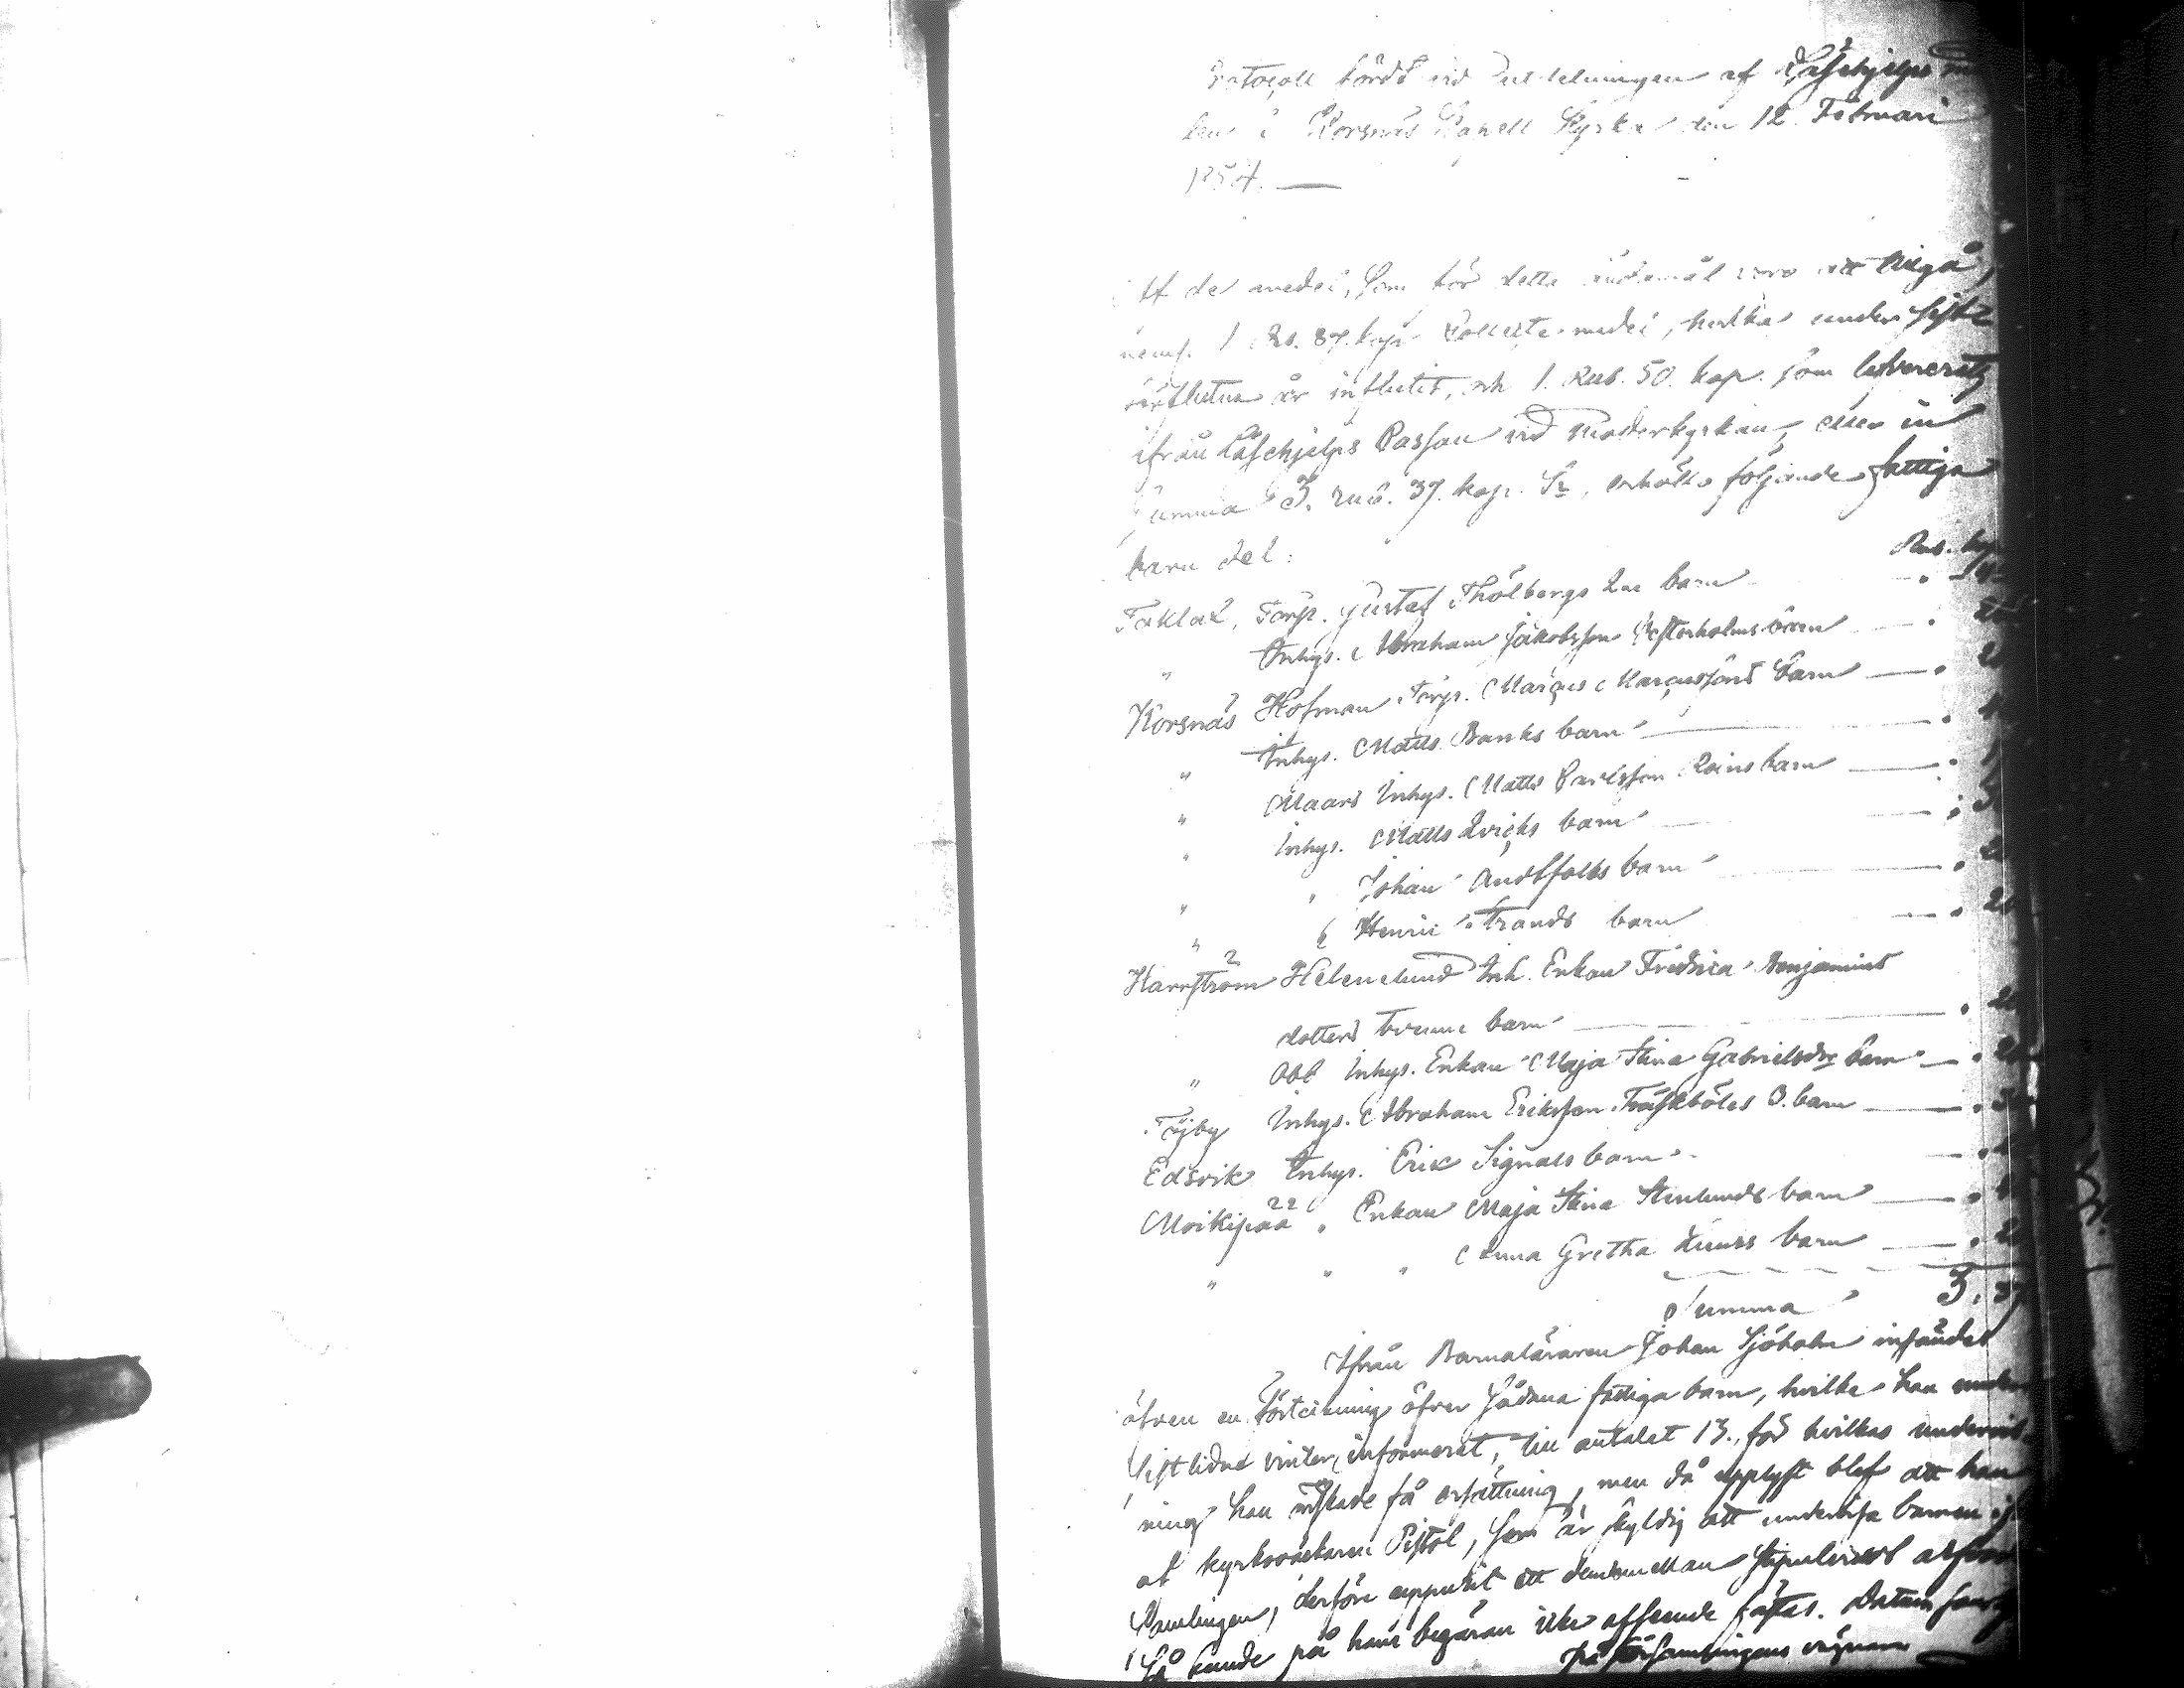 Protocoll fördt vid utdelningen af Läsehjelps me
len i Korsnäs Kapell Kyrka den 12 Februari
1854. —
Af de medel, som för detta ändamål voro att tillgå,
neml. 1 Rb. 87. kop Collecte-medel, hvilka under sist
förflutna år influtit, och 1. Rub. 50. kop. som leverерats
ifrån Läsehjelps Cassan vid Moderkyrkan, eller in
summa 3. rub. 37. kop. Sr, erhöllo följande fattiga
barn del:
Rub. kop
Taklax, Torp. Gustaf Thölbergs barn
" Inhys. Abraham Jakobsson barn — "
Korsnäs Hofman Torp. Marcus Marcussons barn — "
" Inhys. Matts Banks barn — "
" Maars Inhys. Matts Carlsson Roins barn — "
" Inhys. Matts Qvicks barn — "
" " Johan Andtfolks barn — "
" " Henric Strands barn — " 20
Harrström Helenelund Inh. Enkan Fredrica Benjamins
dotters tvenne barn — " 20
" Abb Inhys. Enkan Maja Stina Gabrielsdr barn — "
Töjby Inhys. Abraham Eriksson Träskböles 3. barn — "
Edsvik Inhys. Erik Signals barn — "
Moikipää " Enkan Maja Stina Stenlunds barn — "
" " " Anna Gretha barn — "
Summa 3. 37
Ifrån Barnaläraren Johan Sjöholm insändes
äfven en förteckning öfver sådana fattiga barn, hvilka han under
sistlidne vinter informerat, till antalet 13., för hvilkas undervis
ning han önskade få ersättning, men då upplyst blef att han
af kyrkoväktaren Pistol, som är skyldig att undervisa barnen i
Samlingen, derföre uppburit ett dem emellan stipuleradt
så kunde på hans begäran icke afseende fästas. Datum som
på Församlingens vägnar